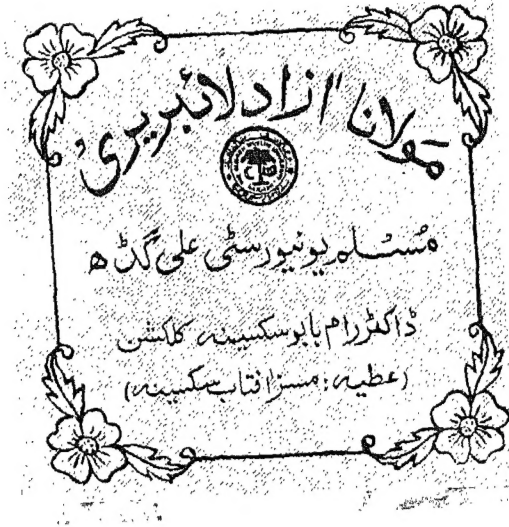 مولانا آزاد لائبریری
مسلم یونیورسٹی علی گڈھ
ڈاکٹر رام بابو سکسینہ کلکشن
(عطیہ: مسز آفتاب سکسینہ)